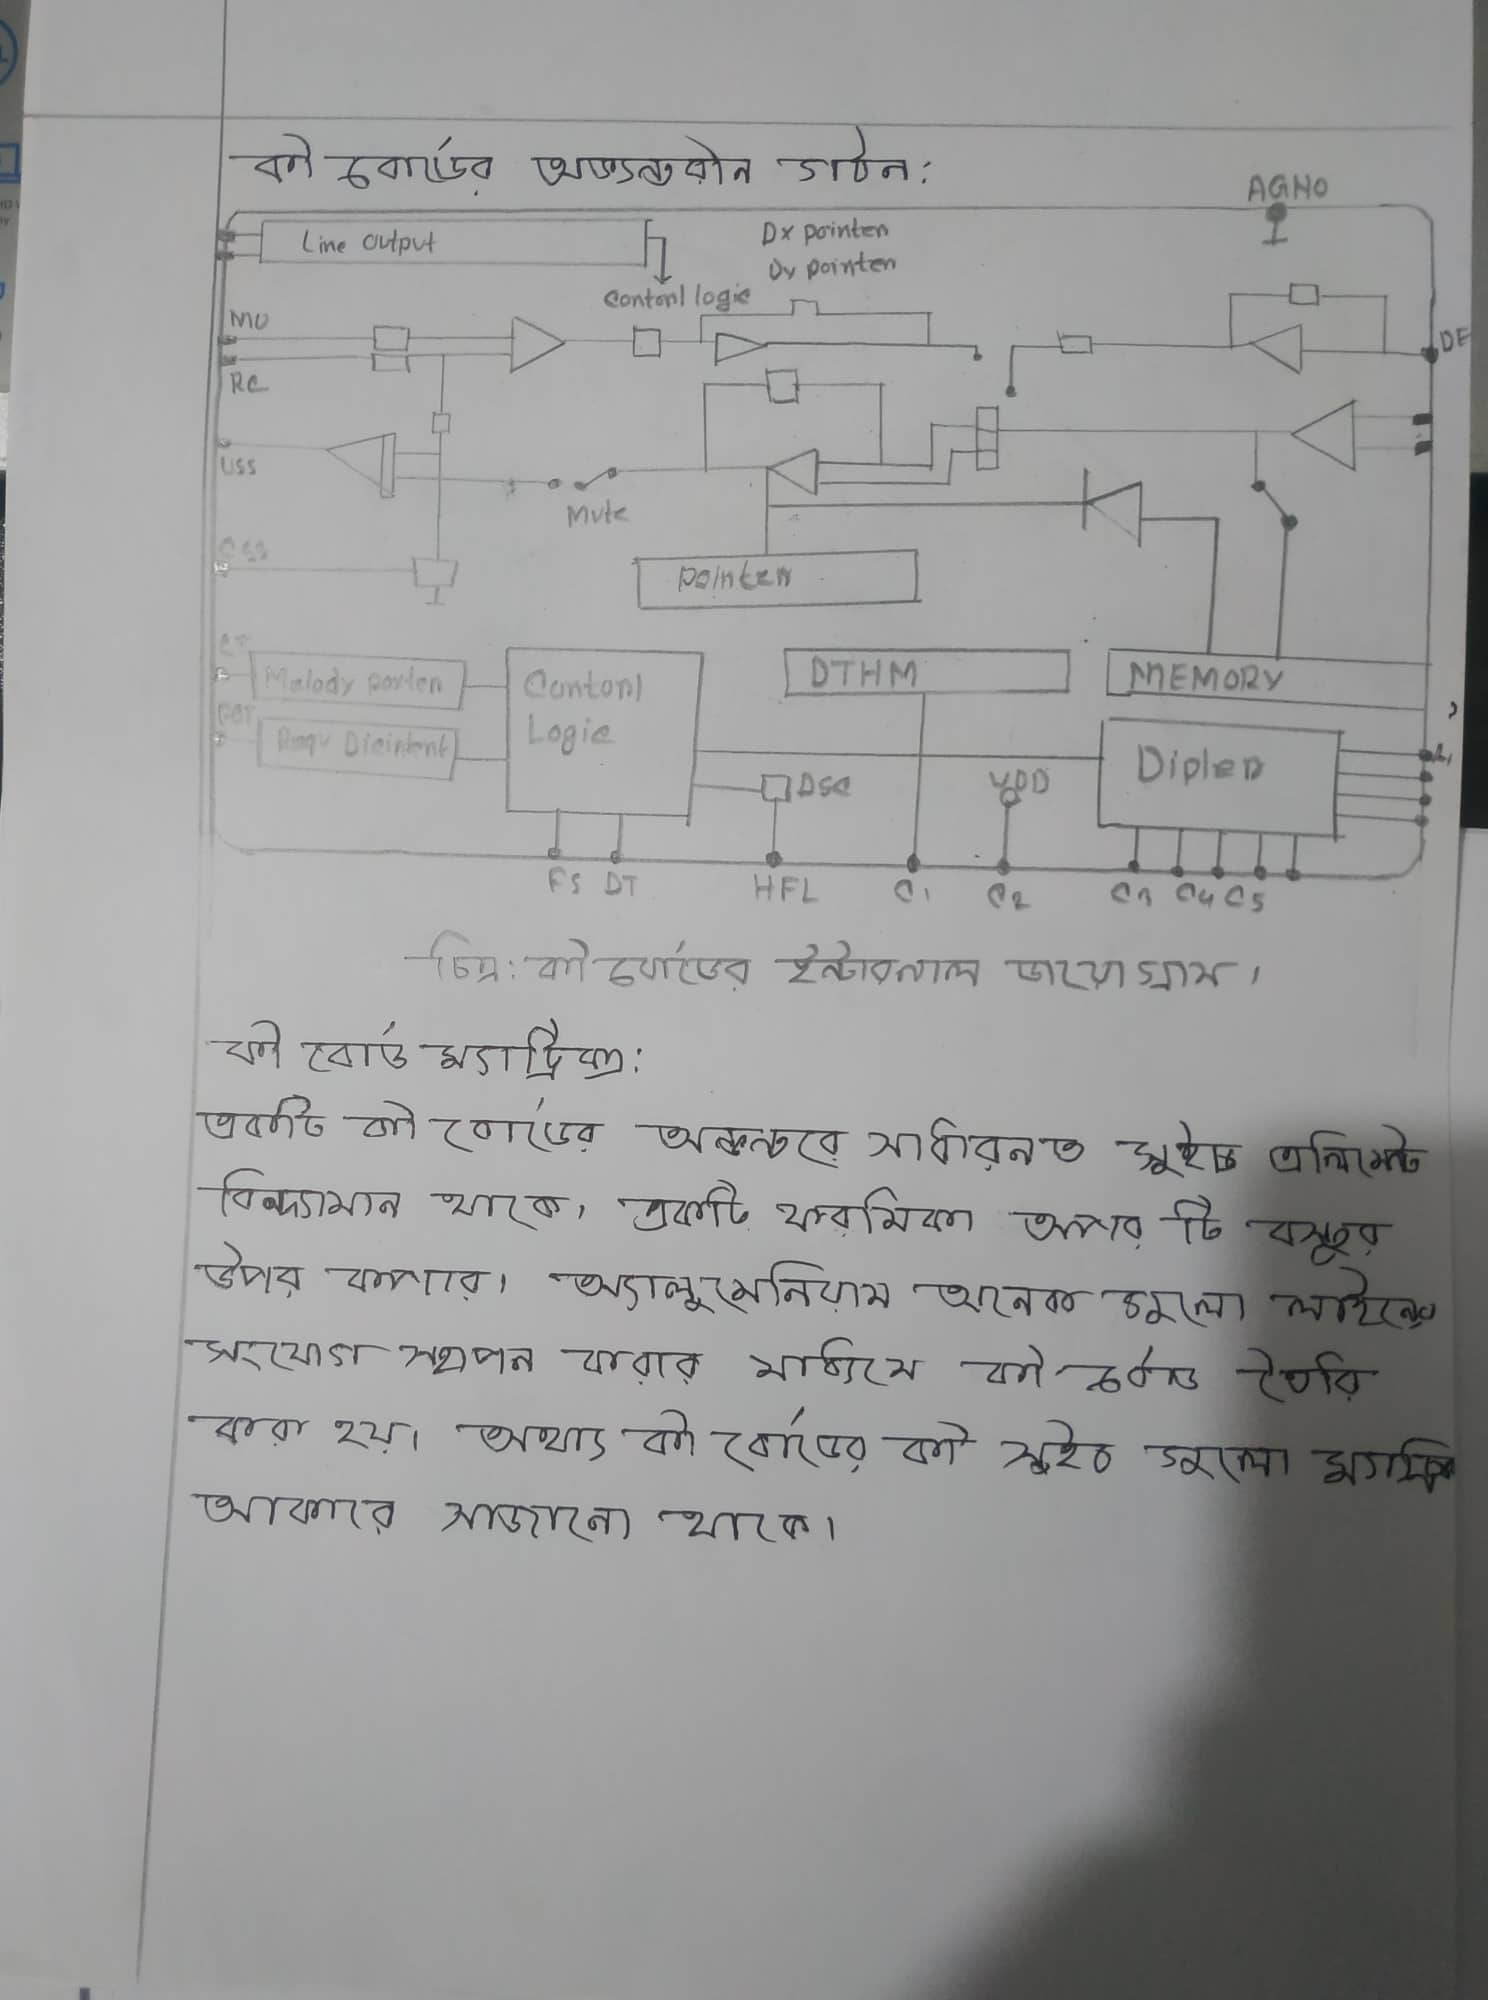 কী বোর্ডের অভ্যন্তরীন গঠন:
AGNO
Line output
Dx pointen
Dy pointen
Contonl logic
MU
RC
DE
USS
Mute
CSS
pointen
CT
Malody ponten
Contonl
Logic
DTHM
MEMORY
Dicintont
Diplen
DSC
VDD
FS DT HFL C1 C2 C3 C4 C5
চিত্র: কী বোর্ডের ইন্টারনাল ডায়োগ্রাম।
কী বোর্ড ম্যাট্রিক্স:
একটি কী বোর্ডের অভ্যন্তরে সাধারনত সুইচ এলিমেন্ট
বিদ্যমান থাকে। একটি অপর টি বস্তুর
উপর অ্যালুমেনিয়াম অনেক গুলো লাইনের
সংযোগ স্থাপন করার মাধ্যমে কী বোর্ড তৈরি
করা হয়। অথ্যাৎ কী বোর্ডের কী সুইচ গুলো
আকারে সাজানো থাকে।